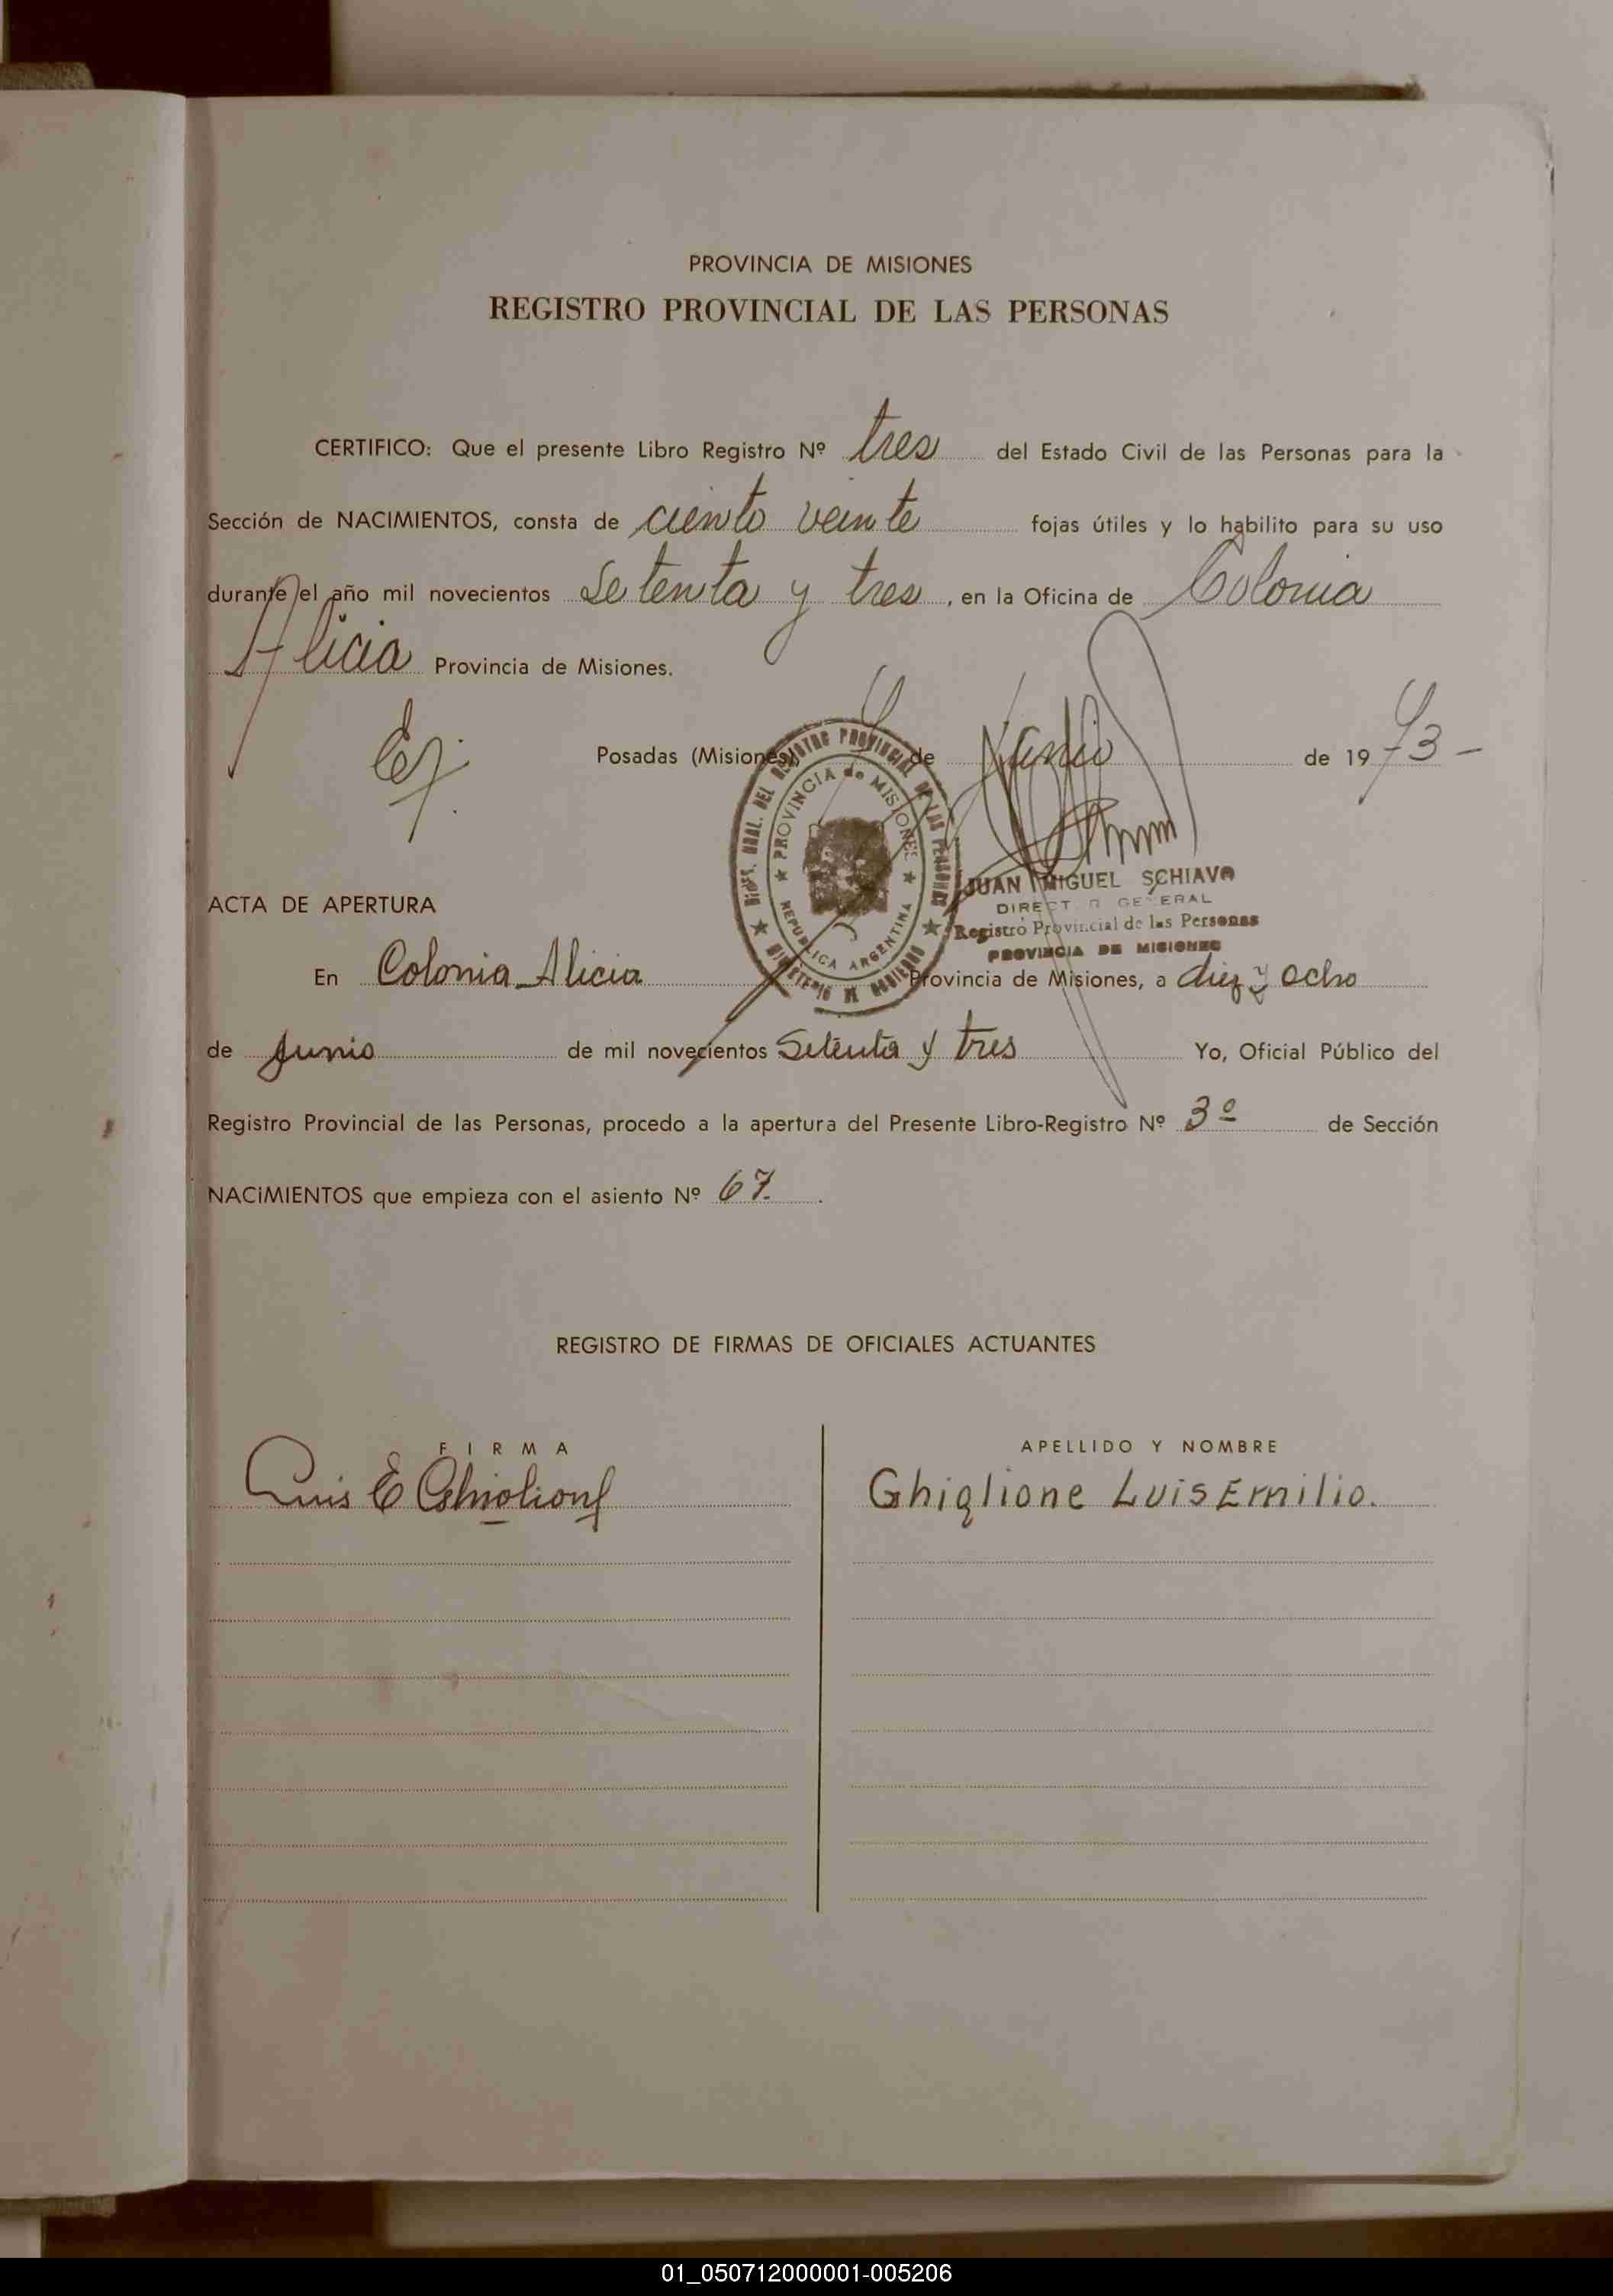 PROVINCIA DE MISIONES
REGISTRO PROVINCIAL DE LAS PERSONAS
CERTIFICO: Que el presente Libro Registro Nº tres del Estado Civil de las Personas para la
Sección de NACIMIENTOS, consta de ciento veinte fojas útiles y lo habilito para su uso
durante el año mil novecientos setenta y tres, en la Oficina de Colonia
Alicia Provincia de Misiones.
Ej.
Posadas (Misiones), de Junio de 1973-
DIREC. GRAL. DEL REGISTRO PROVINCIAL DE LAS PERSONAS
★ MINISTERIO DE GOBIERNO ★
★ PROVINCIA de MISIONES ★
REPUBLICA ARGENTINA
JUAN MIGUEL SCHIAVO
DIRECTOR GENERAL
Registro Provincial de las Personas
PROVINCIA DE MISIONES
ACTA DE APERTURA
En Colonia Alicia Provincia de Misiones, a diez y ocho
de Junio de mil novecientos Setenta y tres Yo, Oficial Público del
Registro Provincial de las Personas, procedo a la apertura del Presente Libro-Registro Nº 3º de Sección
NACIMIENTOS que empieza con el asiento Nº 67.
REGISTRO DE FIRMAS DE OFICIALES ACTUANTES
FIRMA APELLIDO Y NOMBRE
Luis E Ghiglione Ghiglione Luis Emilio.
01_050712000001-005206